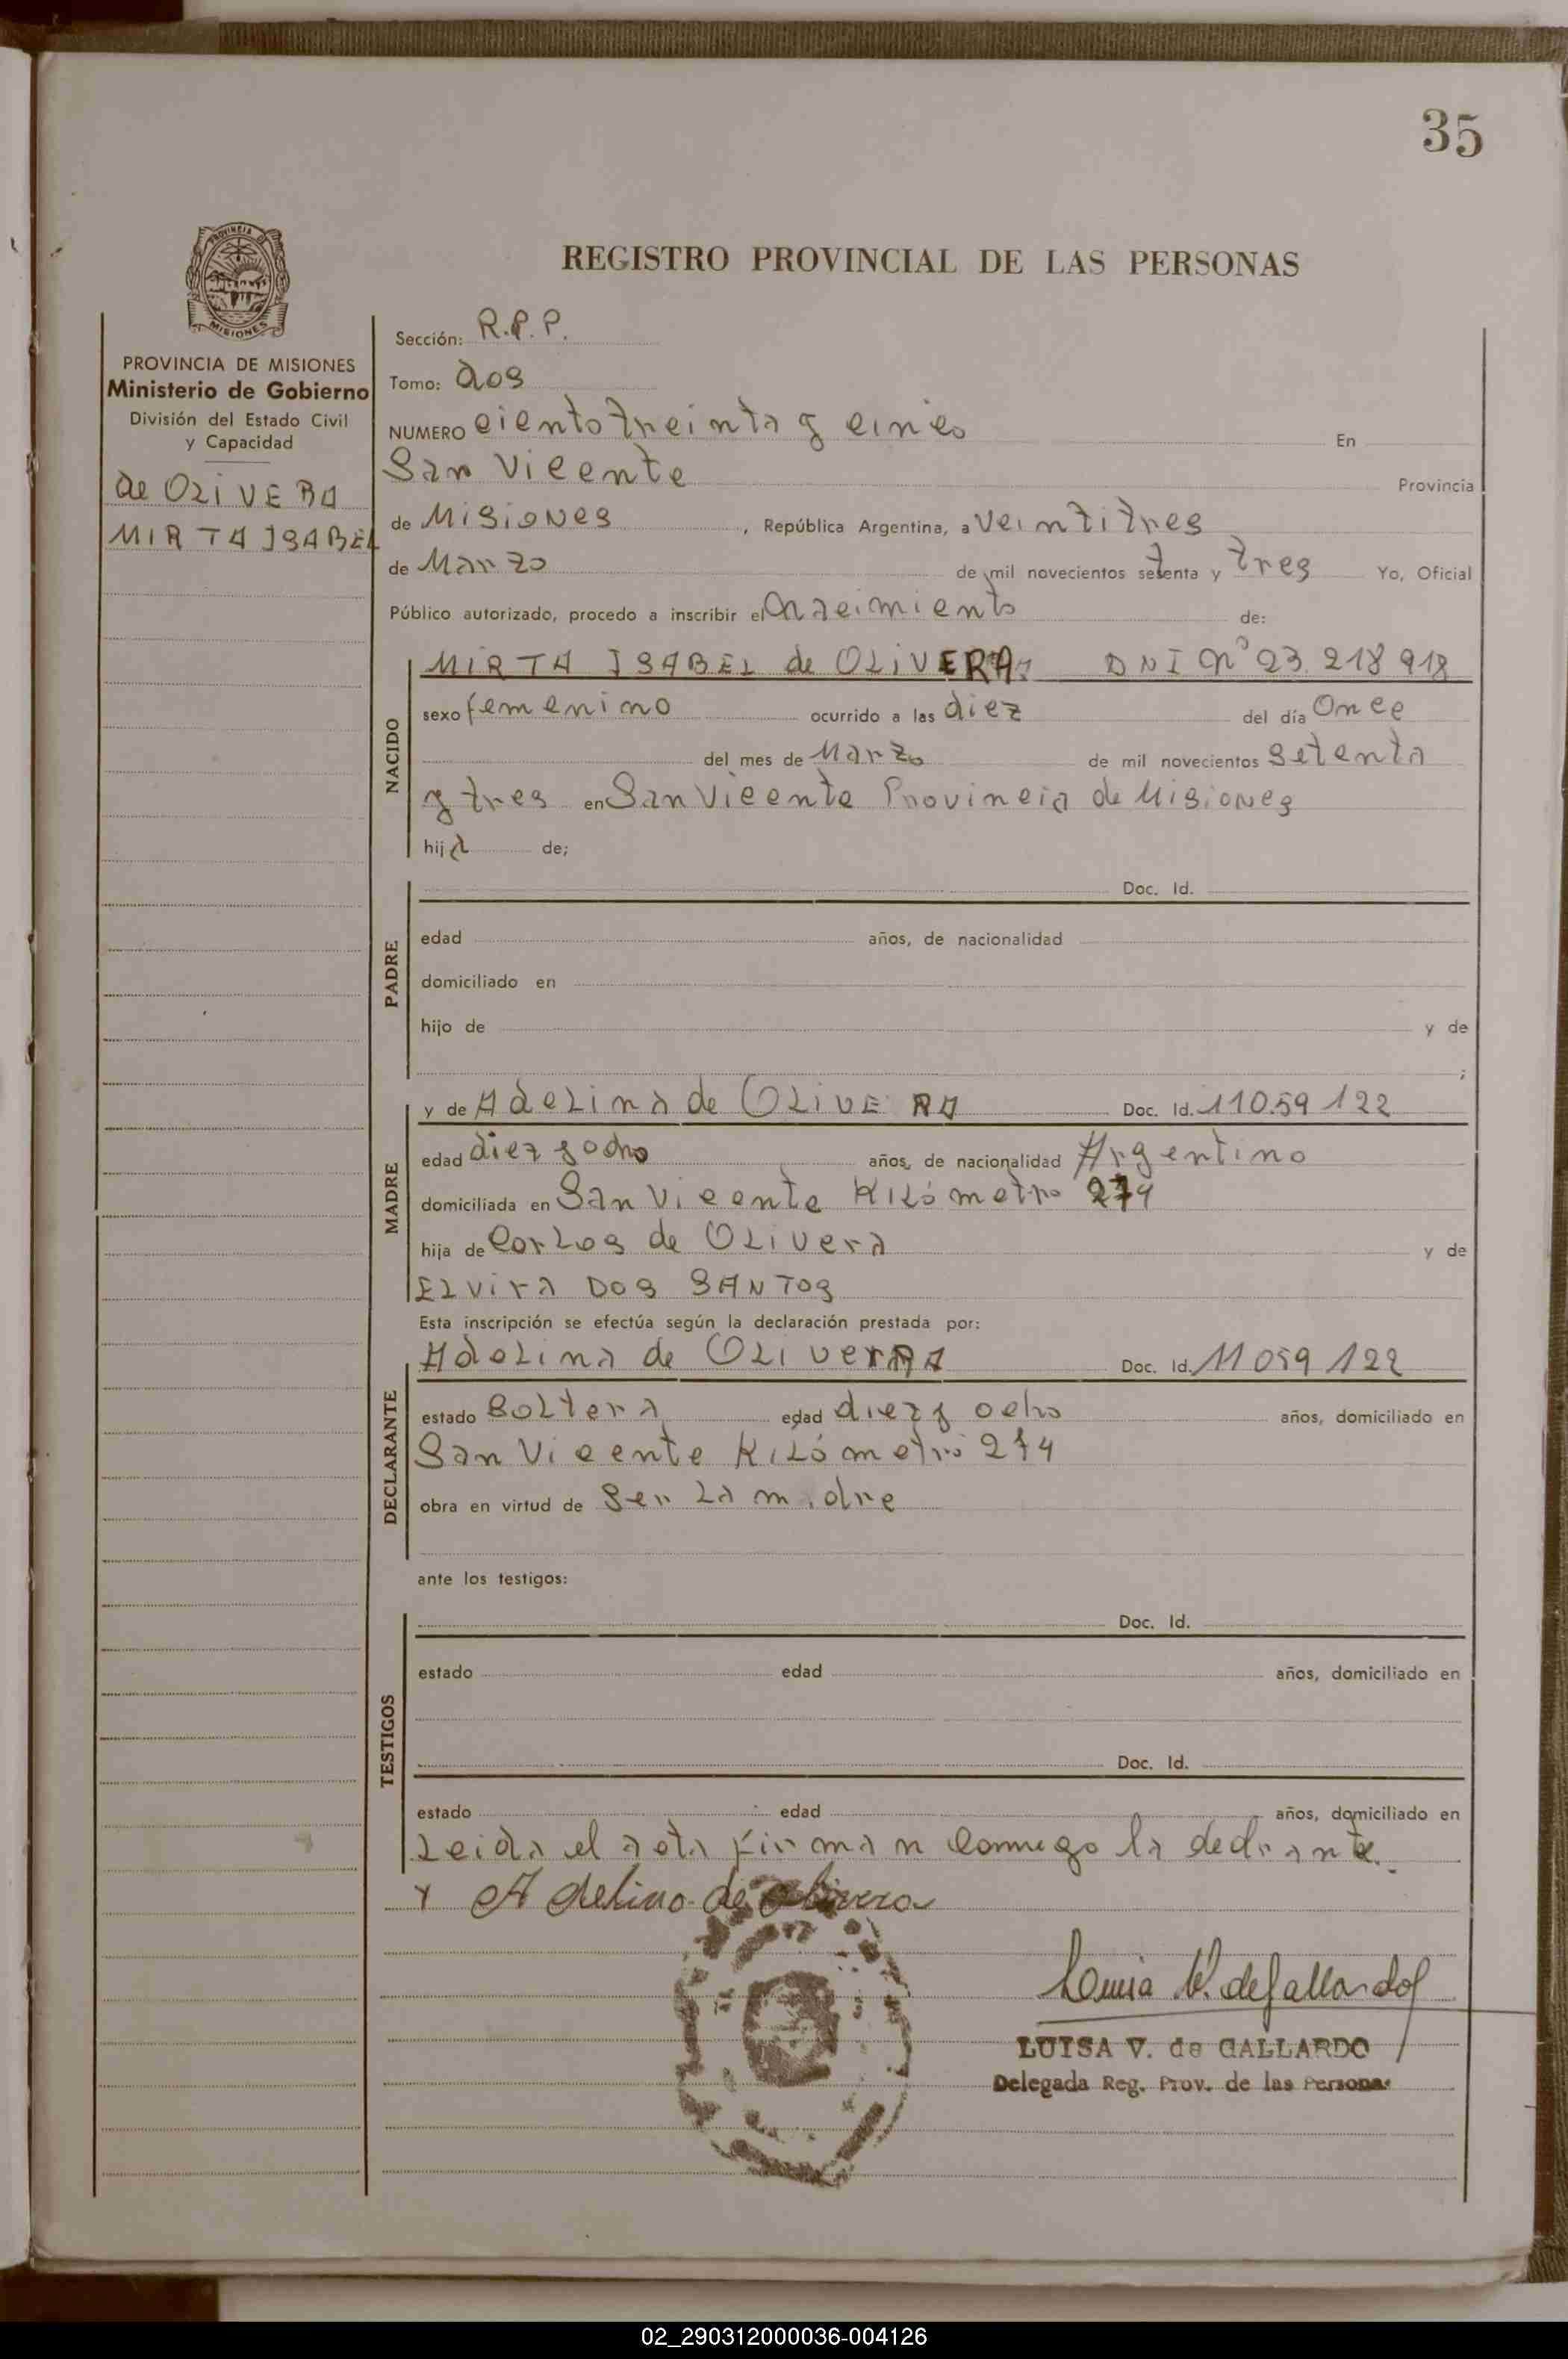 35
PROVINCIA DE
MISIONES
PROVINCIA DE MISIONES
Ministerio de Gobierno
División del Estado Civil
y Capacidad
de OLIVERA
MIRTA ISABEL
REGISTRO PROVINCIAL DE LAS PERSONAS
Sección: R.P.P.
Tomo: dos
NUMERO ciento treinta y cinco En
San Vicente Provincia
de Misiones, República Argentina, a veintitres
de Marzo de mil novecientos setenta y tres Yo, Oficial
Público autorizado, procedo a inscribir el nacimiento de:
NACIDO
MIRTA ISABEL de OLIVERA. DNI Nº 23.218918
sexo femenino ocurrido a las diez del día Once
del mes de Marzo de mil novecientos setenta
y tres en San Vicente Provincia de Misiones
hija de;
PADRE
Doc. Id.
edad años, de nacionalidad
domiciliado en
hijo de y de
;
MADRE
y de Adelina de OLIVERA Doc. Id. 11059122
edad diez y ocho años, de nacionalidad Argentino
domiciliada en San Vicente Kilómetro 274
hija de Carlos de Olivera y de
Elvira DOS SANTOS
Esta inscripción se efectúa según la declaración prestada por:
DECLARANTE
Adelina de Olivera Doc. Id. 11059122
estado Soltera edad diez y ocho años, domiciliado en
San Vicente Kilómetro 274
obra en virtud de Ser la madre
ante los testigos:
TESTIGOS
Doc. Id.
estado edad años, domiciliado en
Doc. Id.
estado edad años, domiciliado en
Leida el acta firman conmigo la
x Adelina de Olivera
Luisa V. de Gallardo
LUISA V. de GALLARDO
Delegada Reg. Prov. de las Personas
02_290312000036-004126